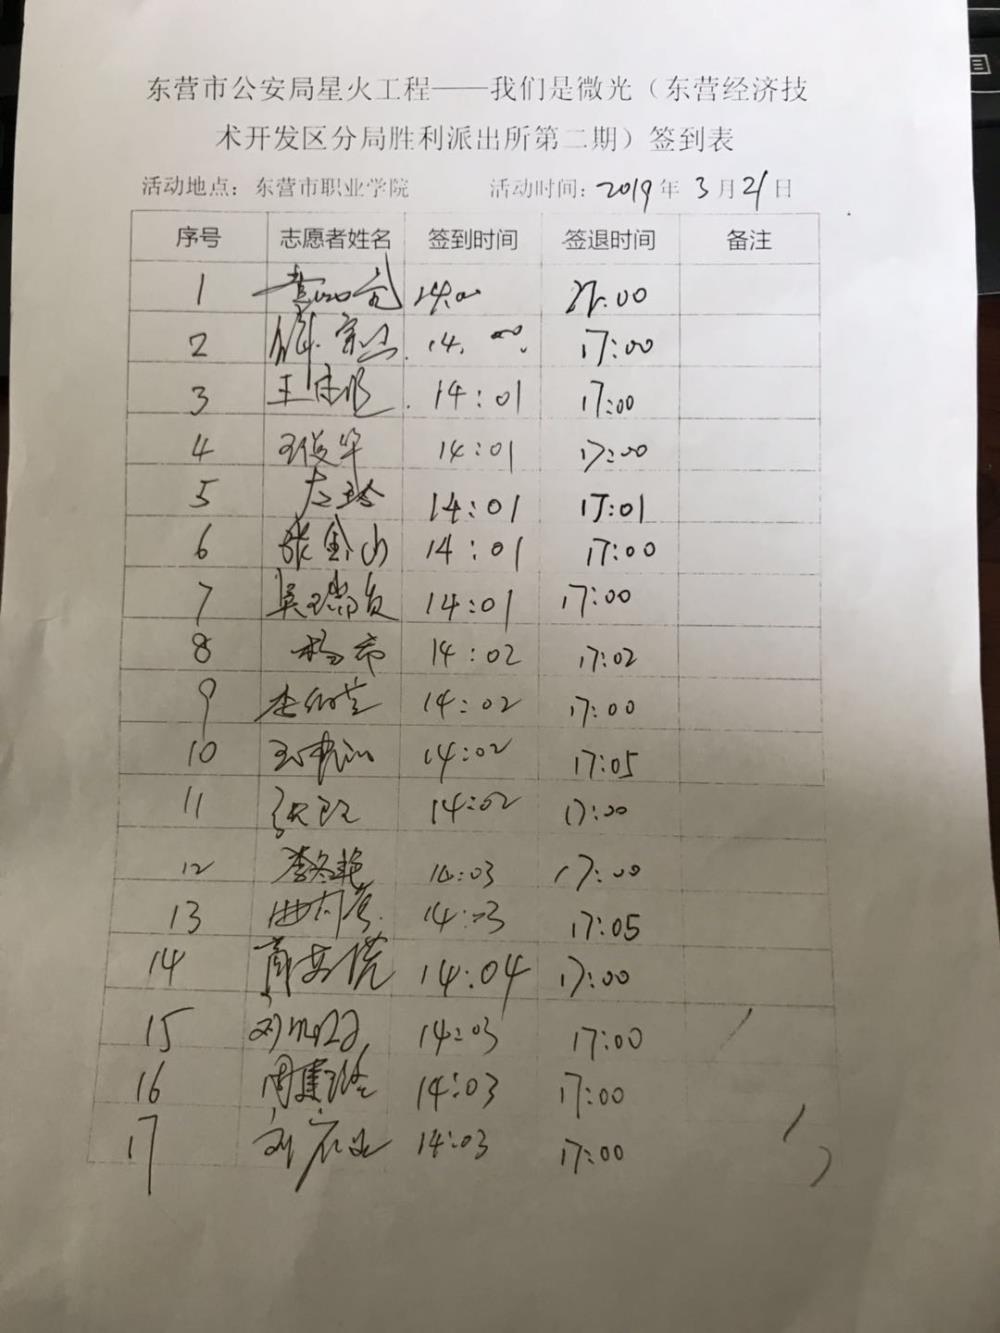 东营市公安局星火工程——我们是微光（东营经济技
术开发区分局胜利派出所第二期）签到表
活动地点：东营市职业学院 活动时间：2019年3月21日
序号 志愿者姓名 签到时间 签退时间 备注
1 14:00 :00
2 14:00 17:00
3 14:01 17:00
4 王俊华 14:01 17:00
5 14:01 17:01
6 张金山 14:01 17:00
7 吴瑞贞 14:01 17:00
8 杨希 14:02 17:02
9 14:02 17:00
10 14:02 17:05
11 14:02 17:00
12 李冬艳 14:03 17:00
13 14:03 17:05
14 14:04 17:00
15 14:03 17:00
16 周建 14:03 17:00
17 刘 14:03 17:00